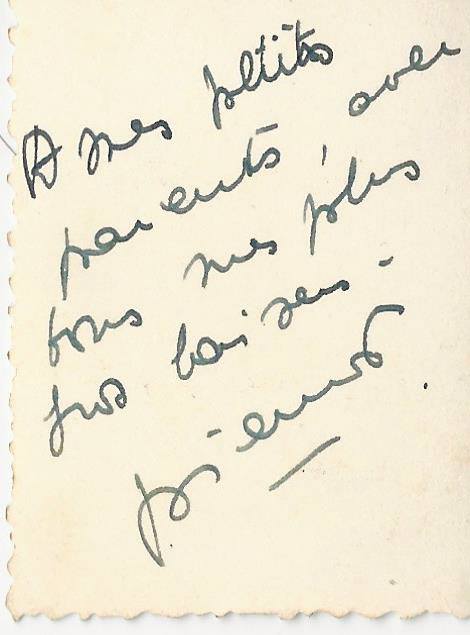 A mes petits
parents, avec
tous mes plus
gros baisers.
Pierrot